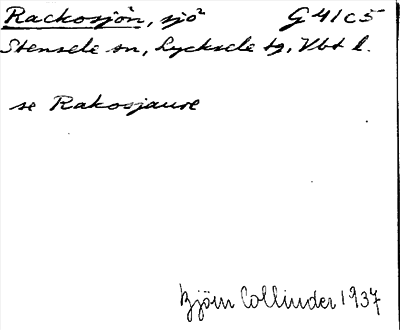 Rackosjön, sjö² G 41 c 5
Stensele sn, Lycksele tg, Vbt l.
se Rakosjaure
Björn Collinder 1937